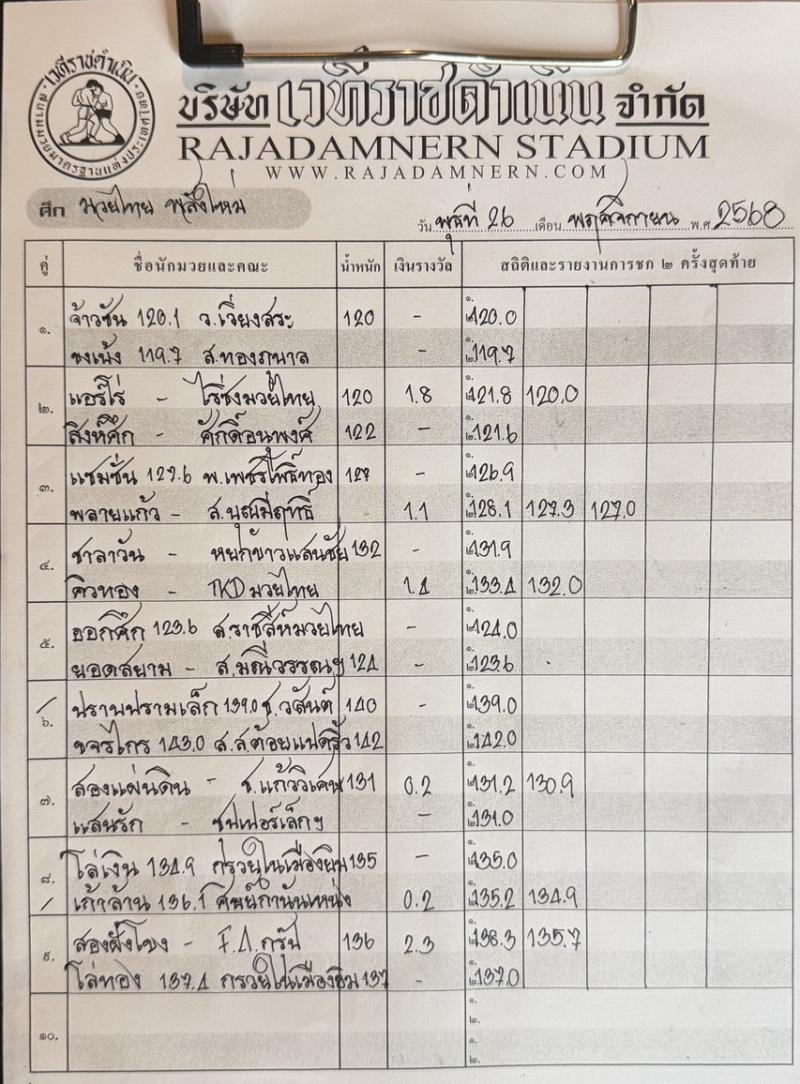 เวทีราชดำเนิน
บริษัท เวทีราชดำเนิน จำกัด
RAJADAMNERN STADIUM
WWW.RAJADAMNERN.COM
ศึก มวยไทย พลังใหม่
วัน พุธที่ 26 เดือน พฤศจิกายน พ.ศ. 2568
คู่ ชื่อนักมวยและคณะ น้ำหนัก เงินรางวัล สถิติและรายงานการชก ๒ ครั้งสุดท้าย
๑. จ้าวซัน 120.1 ว.เวียงสระ 120 - ๑. 120.0
119.7 ส.ทองภบาล - ๒. 119.7
๒. แอรีโร่ - ไร่ซงมวยไทย 120 1.8 ๑. 121.8 120.0
สิงห์ศึก - ศักดิ์อนพงศ์ 122 - ๒. 121.6
๓. แชมชั่น 127.6 พ.เพชรโพธิ์ทอง 127 - ๑. 126.9
พลายแก้ว - ส.บุญมีฤทธิ์ 1.1 ๒. 128.1 127.3 127.0
๔. ชาลาวัน - หยกขาวแสนชัย 132 - ๑. 131.9
คิวทอง - TKD มวยไทย 1.4 ๒. 133.4 132.0
๕. ออกศึก 123.6 ส.ราชสีห์มวยไทย - ๑. 124.0
ยอดสยาม - ส.มณีวรรณฯ 124 - ๒. 123.6
๖. ปราบปรามเล็ก 139.0 ช.วสันต์ 140 - ๑. 139.0
ขจรไกร 143.0 ส.ส.ต้อยแปดริ้ว 142 ๒. 142.0
๗. สองแผ่นดิน - ช.แก้ววิเศษ 131 0.2 ๑. 131.2 130.9
แสนรัก - ซุปเปอร์เล็กฯ - ๒. 131.0
๘. โล่เงิน 134.9 กรวยในเมืองยิม 135 - ๑. 135.0
เก้าล้าน 136.1 ศิษย์กำนันหนุ่ง 0.2 ๒. 135.2 134.9
๙. สองฝั่งโขง - F.A.กรุ๊ป 136 2.3 ๑. 138.3 135.7
โล่ทอง 137.4 กรวยในเมืองยิม 137 - ๒. 137.0
๑๐. ๑.
๒.
๑.
๒.